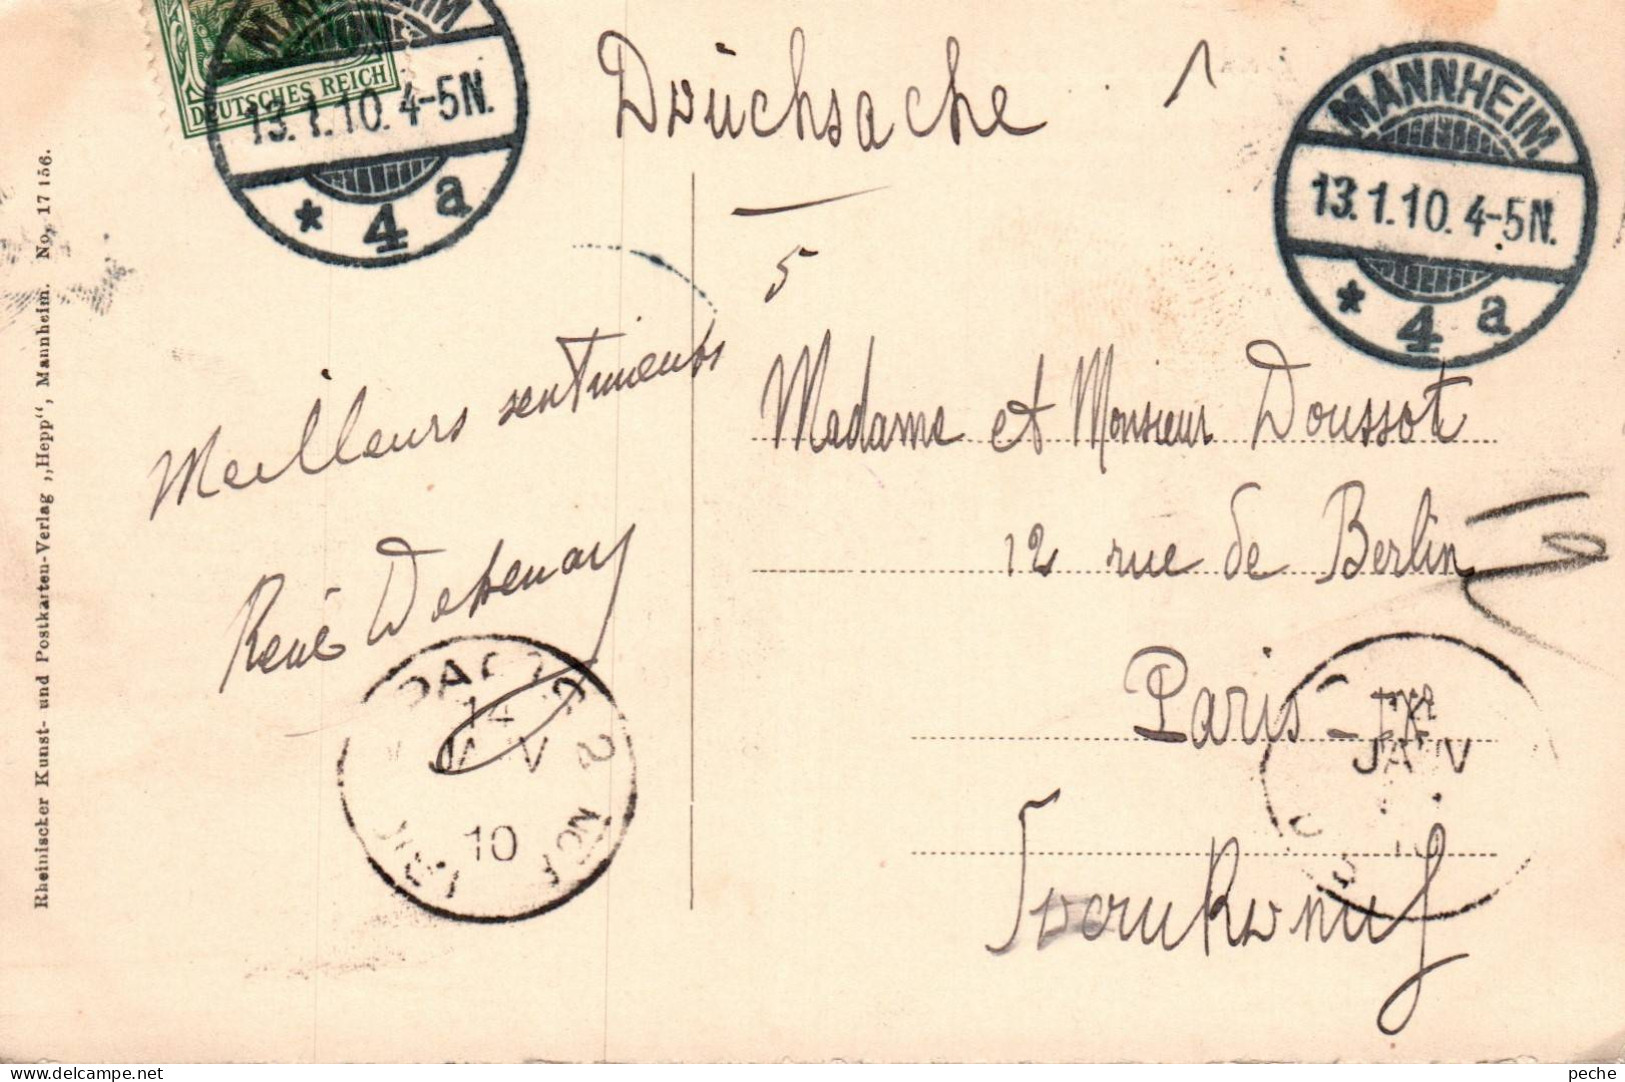 DEUTSCHES REICH
13.1.10. 4-5N.
* 4 a
Drucksache
MANNHEIM
13.1.10. 4-5N.
* 4 a
5
Meilleurs sentiments
René
Madame et Monsieur Doussot
12 rue de Berlin
Paris - IXe
Frankreich
14
2
10
JANV
Rheinischer Kunst- und Postkarten-Verlag „Hepp“, Mannheim. No. 17156.
delcampe.net
peche